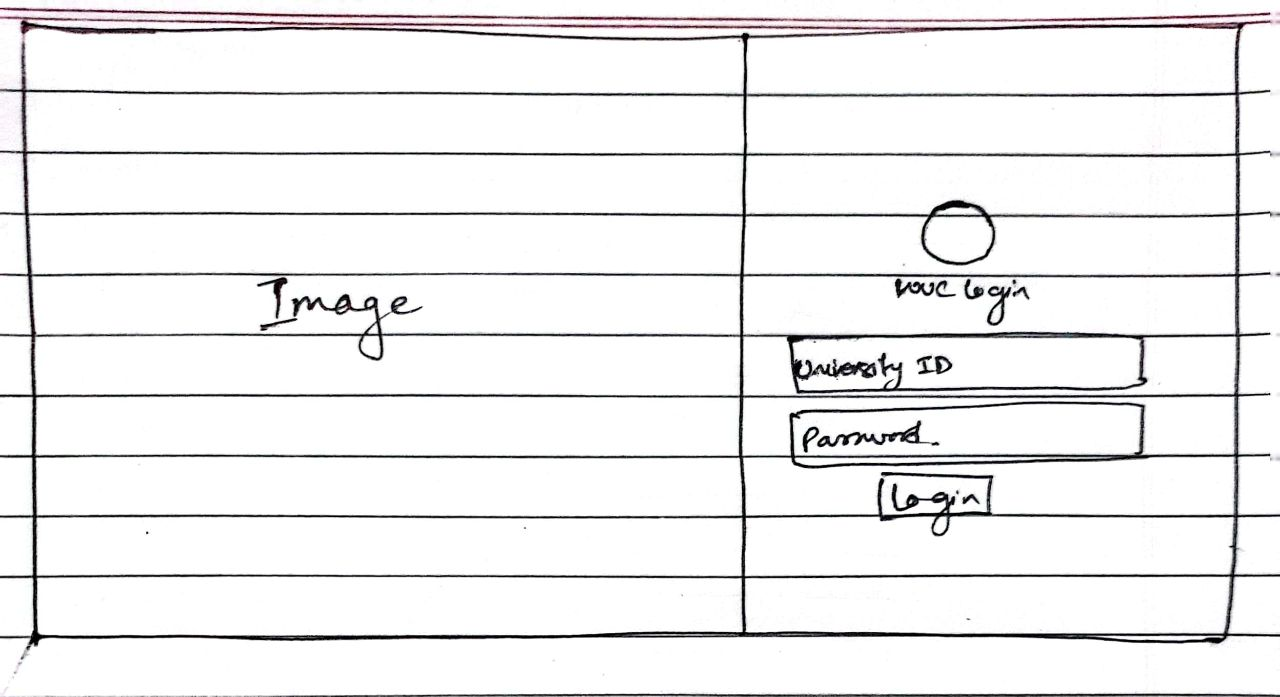 Image
Login
University ID
Password.
Login